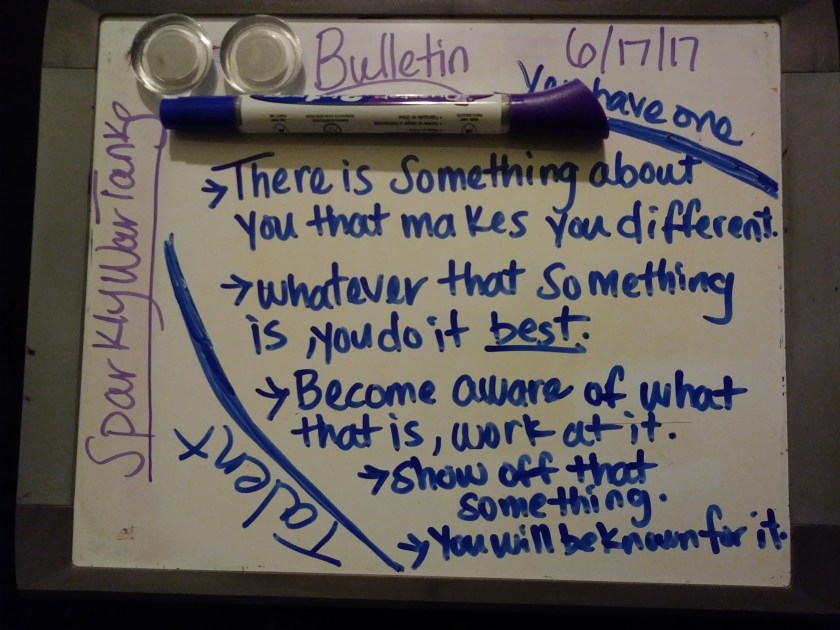 Bulletin 6/17/17
You have one
SparklyWarTanks
→There is Something about
you that makes you different.
→whatever that something
is, you do it best.
→Become aware of what
that is, work at it.
→show off that
something.
→You will be known for it.
Talent